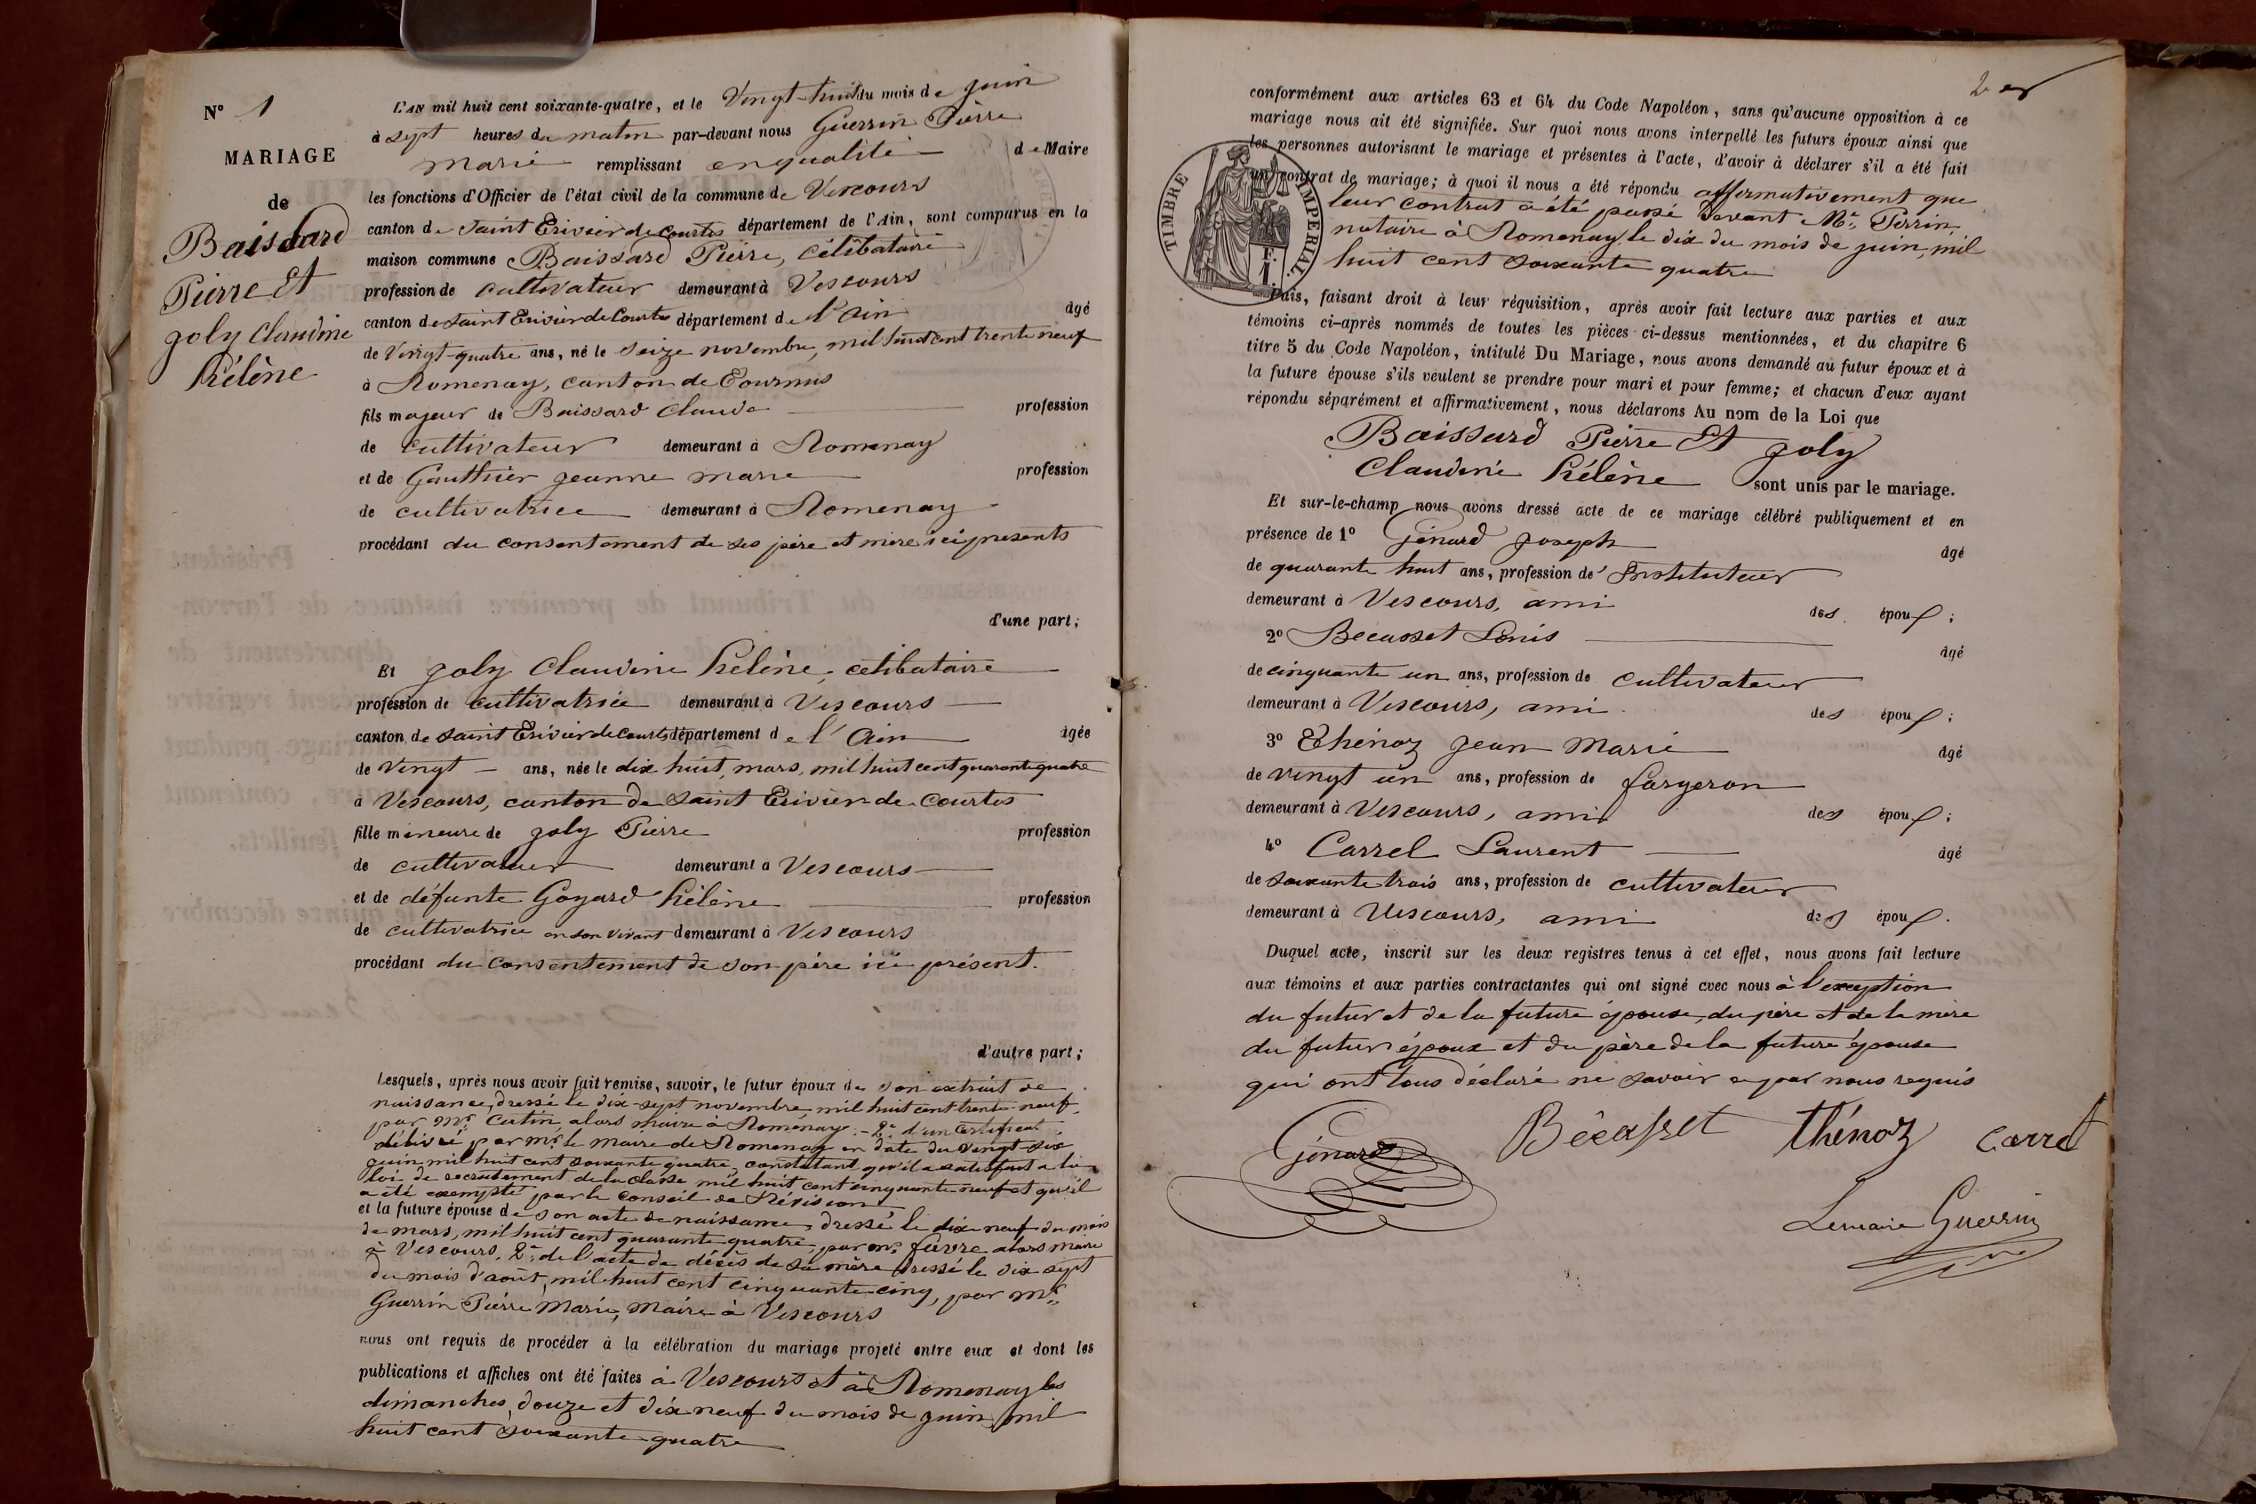 N° 1
MARIAGE
de
Baissard
Pierre Et
joly Claudine
hélène
L'AN mil huit cent soixante-quatre, et le Vingt-huit du mois de juin
à sept heures du matin par-devant nous Guerrin Pierre
marie remplissant en qualité de Maire
les fonctions d'Officier de l'état civil de la commune de Vescours
canton de Saint Trivier de Courtes département de l'Ain, sont comparus en la
maison commune Baissard Pierre, célibataire
profession de cultivateur demeurant à Vescours
canton de Saint Trivier de Courtes département de l'Ain âgé
de Vingt-quatre ans, né le seize novembre, mil huit cent trente neuf
à Romenay, canton de Tournus
fils majeur de Baissard Claude profession
de cultivateur demeurant à Romenay
et de Gauthier jeanne marie profession
de cultivatrice demeurant à Romenay
procédant du consentement de ses père et mère ici présents
d'une part;
Et joly Claudine hélène, célibataire
profession de cultivatrice demeurant à Vescours
canton de Saint Trivier de Courtes département de l'Ain âgée
de Vingt ans, née le dix huit, mars, mil huit cent quarante quatre
à Vescours, canton de Saint Trivier de Courtes
fille mineure de joly Pierre profession
de cultivateur demeurant à Vescours
et de défunte Goyard hélène profession
de cultivatrice en son vivant demeurant à Vescours
procédant du consentement de son père ici présent.
d'autre part;
Lesquels, après nous avoir fait remise, savoir, le futur époux de son extrait de
naissance, dressé le dix-sept novembre, mil huit cent trente-neuf,
par Mr. Cutin, alors Maire à Romenay. - 2° d'un certificat
délivré par mr. le Maire de Romenay en date du vingt-six
juin mil huit cent soixante quatre, constatant qu'il a satisfait à la
loi de recrutement de la classe mil huit cent cinquante neuf et qu'il
a été exempté par le Conseil de Révision
et la future épouse de son acte de naissance, dressé le dix neuf du mois
de mars, mil huit cent quarante quatre, par mr. favre alors maire
à Vescours, 2° de l'acte de décès de sa mère dressé le dix sept
du mois d'août, mil huit cent cinquante cinq, par Mr.
Guerrin Pierre Marie, Maire à Vescours
nous ont requis de procéder à la célébration du mariage projeté entre eux et dont les
publications et affiches ont été faites à Vescours et à Romenay les
dimanches, douze et dix neuf du mois de juin, mil
huit cent soixante-quatre
conformément aux articles 63 et 64 du Code Napoléon, sans qu'aucune opposition à ce
mariage nous ait été signifiée. Sur quoi nous avons interpellé les futurs époux ainsi que
les personnes autorisant le mariage et présentes à l'acte, d'avoir à déclarer s'il a été fait
un contrat de mariage; à quoi il nous a été répondu affirmativement que
leur contrat a été passé devant Me. Perrin
notaire à Romenay, le dix du mois de juin, mil
huit cent soixante quatre
TIMBRE IMPÉRIAL.
F.
1.
Puis, faisant droit à leur réquisition, après avoir fait lecture aux parties et aux
témoins ci-après nommés de toutes les pièces ci-dessus mentionnées, et du chapitre 6
titre 5 du Code Napoléon, intitulé Du Mariage, nous avons demandé au futur époux et à
la future épouse s'ils veulent se prendre pour mari et pour femme; et chacun d'eux ayant
répondu séparément et affirmativement, nous déclarons Au nom de la Loi que
Baissard Pierre Et joly
Claudine hélène sont unis par le mariage.
Et sur-le-champ nous avons dressé acte de ce mariage célébré publiquement et en
présence de 1° Génard joseph âgé
de quarante huit ans, profession de Instituteur
demeurant à Vescours, ami des époux;
2° Becasset Denis âgé
de cinquante un ans, profession de cultivateur
demeurant à Vescours, ami des époux;
3° Thénoz jean Marie âgé
de vingt un ans, profession de forgeron
demeurant à Vescours, ami des époux;
4° Carrel Laurent âgé
de soixante trois ans, profession de cultivateur
demeurant à Vescours, ami des époux.
Duquel acte, inscrit sur les deux registres tenus à cet effet, nous avons fait lecture
aux témoins et aux parties contractantes qui ont signé avec nous à l'exception
du futur et de la future épouse, du père et de la mère
du futur époux et du père de la future épouse
qui ont tous déclaré ne savoir par nous requis
Génard Bécasset thénoz Carrel
Le maire Guerrin